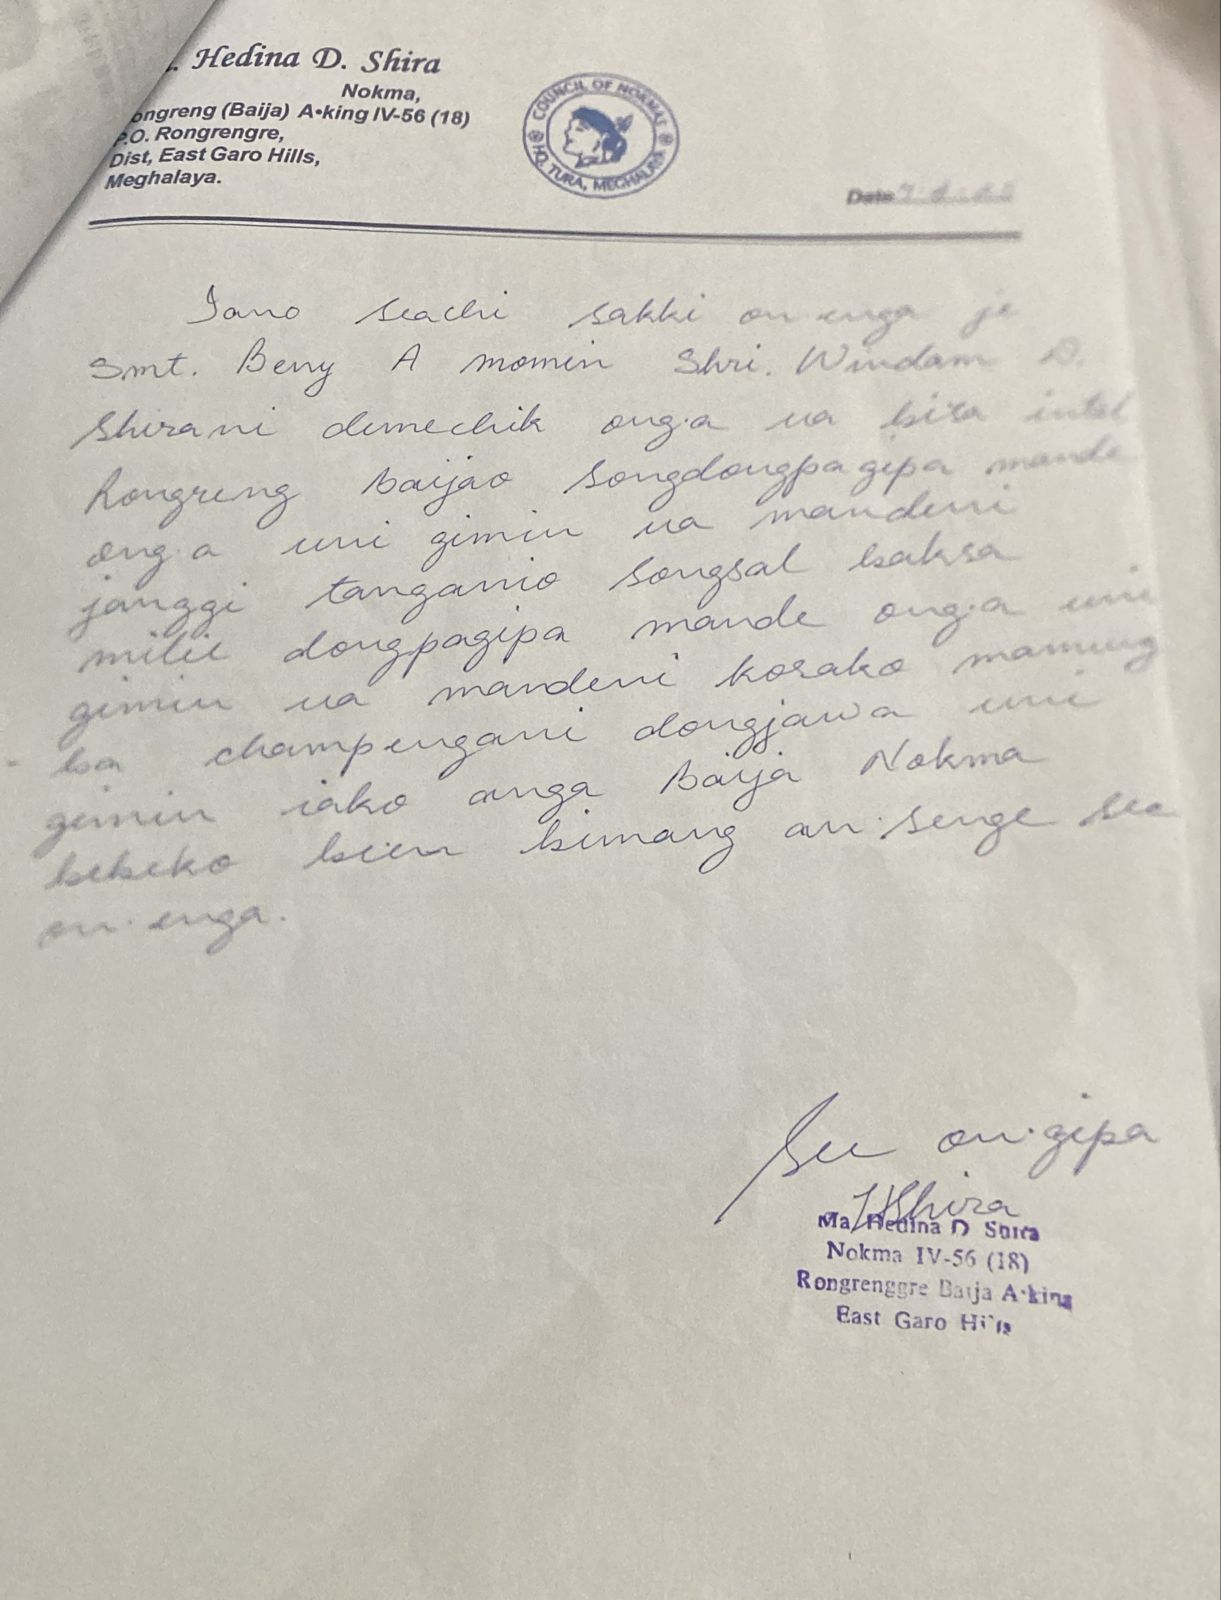 Hedina D. Shira
Nokma,
ongreng (Baija) A•king IV-56 (18)
P.O. Rongrengre,
Dist, East Garo Hills,
Meghalaya.
COUNCIL OF NOKMAS
HQ. TURA, MEGHALAYA
Date
Iano seachi sakki on·enga je
Smt. Beny A momin Shri. Windam D.
Shirani demechik ong·a ua bisa intal
Rongreng Baijao songdongpagipa mande
ong·a uni gimin ua mandeni
janggi tanganio songsal baksa
milii dongpagipa mande ong·a uni
gimin ua mandeni kosako mamung
ba champengani dongjawa uni
gimin iako anga Baija Nokma
bebeko bien bimang an·senge see
on·enga.
See on·gipa
HShira
Ma. Hedina D Shira
Nokma IV-56 (18)
Rongrenggre Baija A·king
East Garo Hills